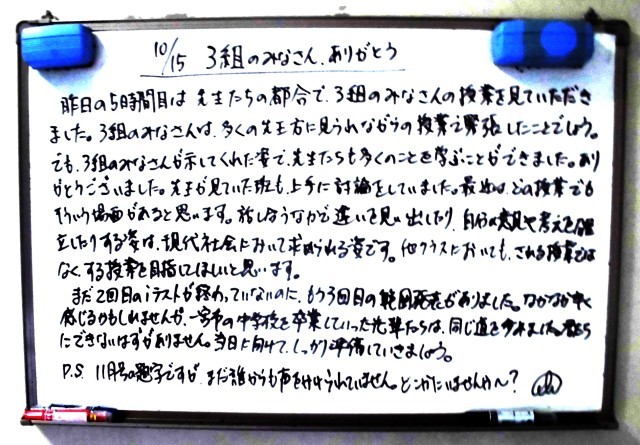 10/15 3組のみなさん、ありがとう
昨日の5時間目は先生たちの都合で、3組のみなさんの授業を見ていただき
ました。3組のみなさんは、多くの先生方に見られながらの授業で緊張したことでしょう。
でも、3組のみなさんが示してくれた姿で、先生たちも多くのことを学ぶことができました。あり
がとうございました。先生が見ていた班も、上手に討論をしていました。最近は、どの授業でも
そういう場面があると思います。話し合うなかで違いを見い出したり、自分の意見や考えを確
立したりする姿は、現代社会において求められる姿です。他クラスにおいても、される授業では
なく、する授業を目指してほしいと思います。
まだ2回目のテストが終わっていないのに、もう3回目の範囲発表がありました。なかなか辛く
感じるかもしれませんが、一宮市の中学校を卒業していった先輩たちは、同じ道を歩みました。君たち
にできないはずがありません。当日に向けて、しっかり準備していきましょう。
P.S. 11月号の題字ですが、まだ誰からも声をかけられていません。どこかにいませんか〜?